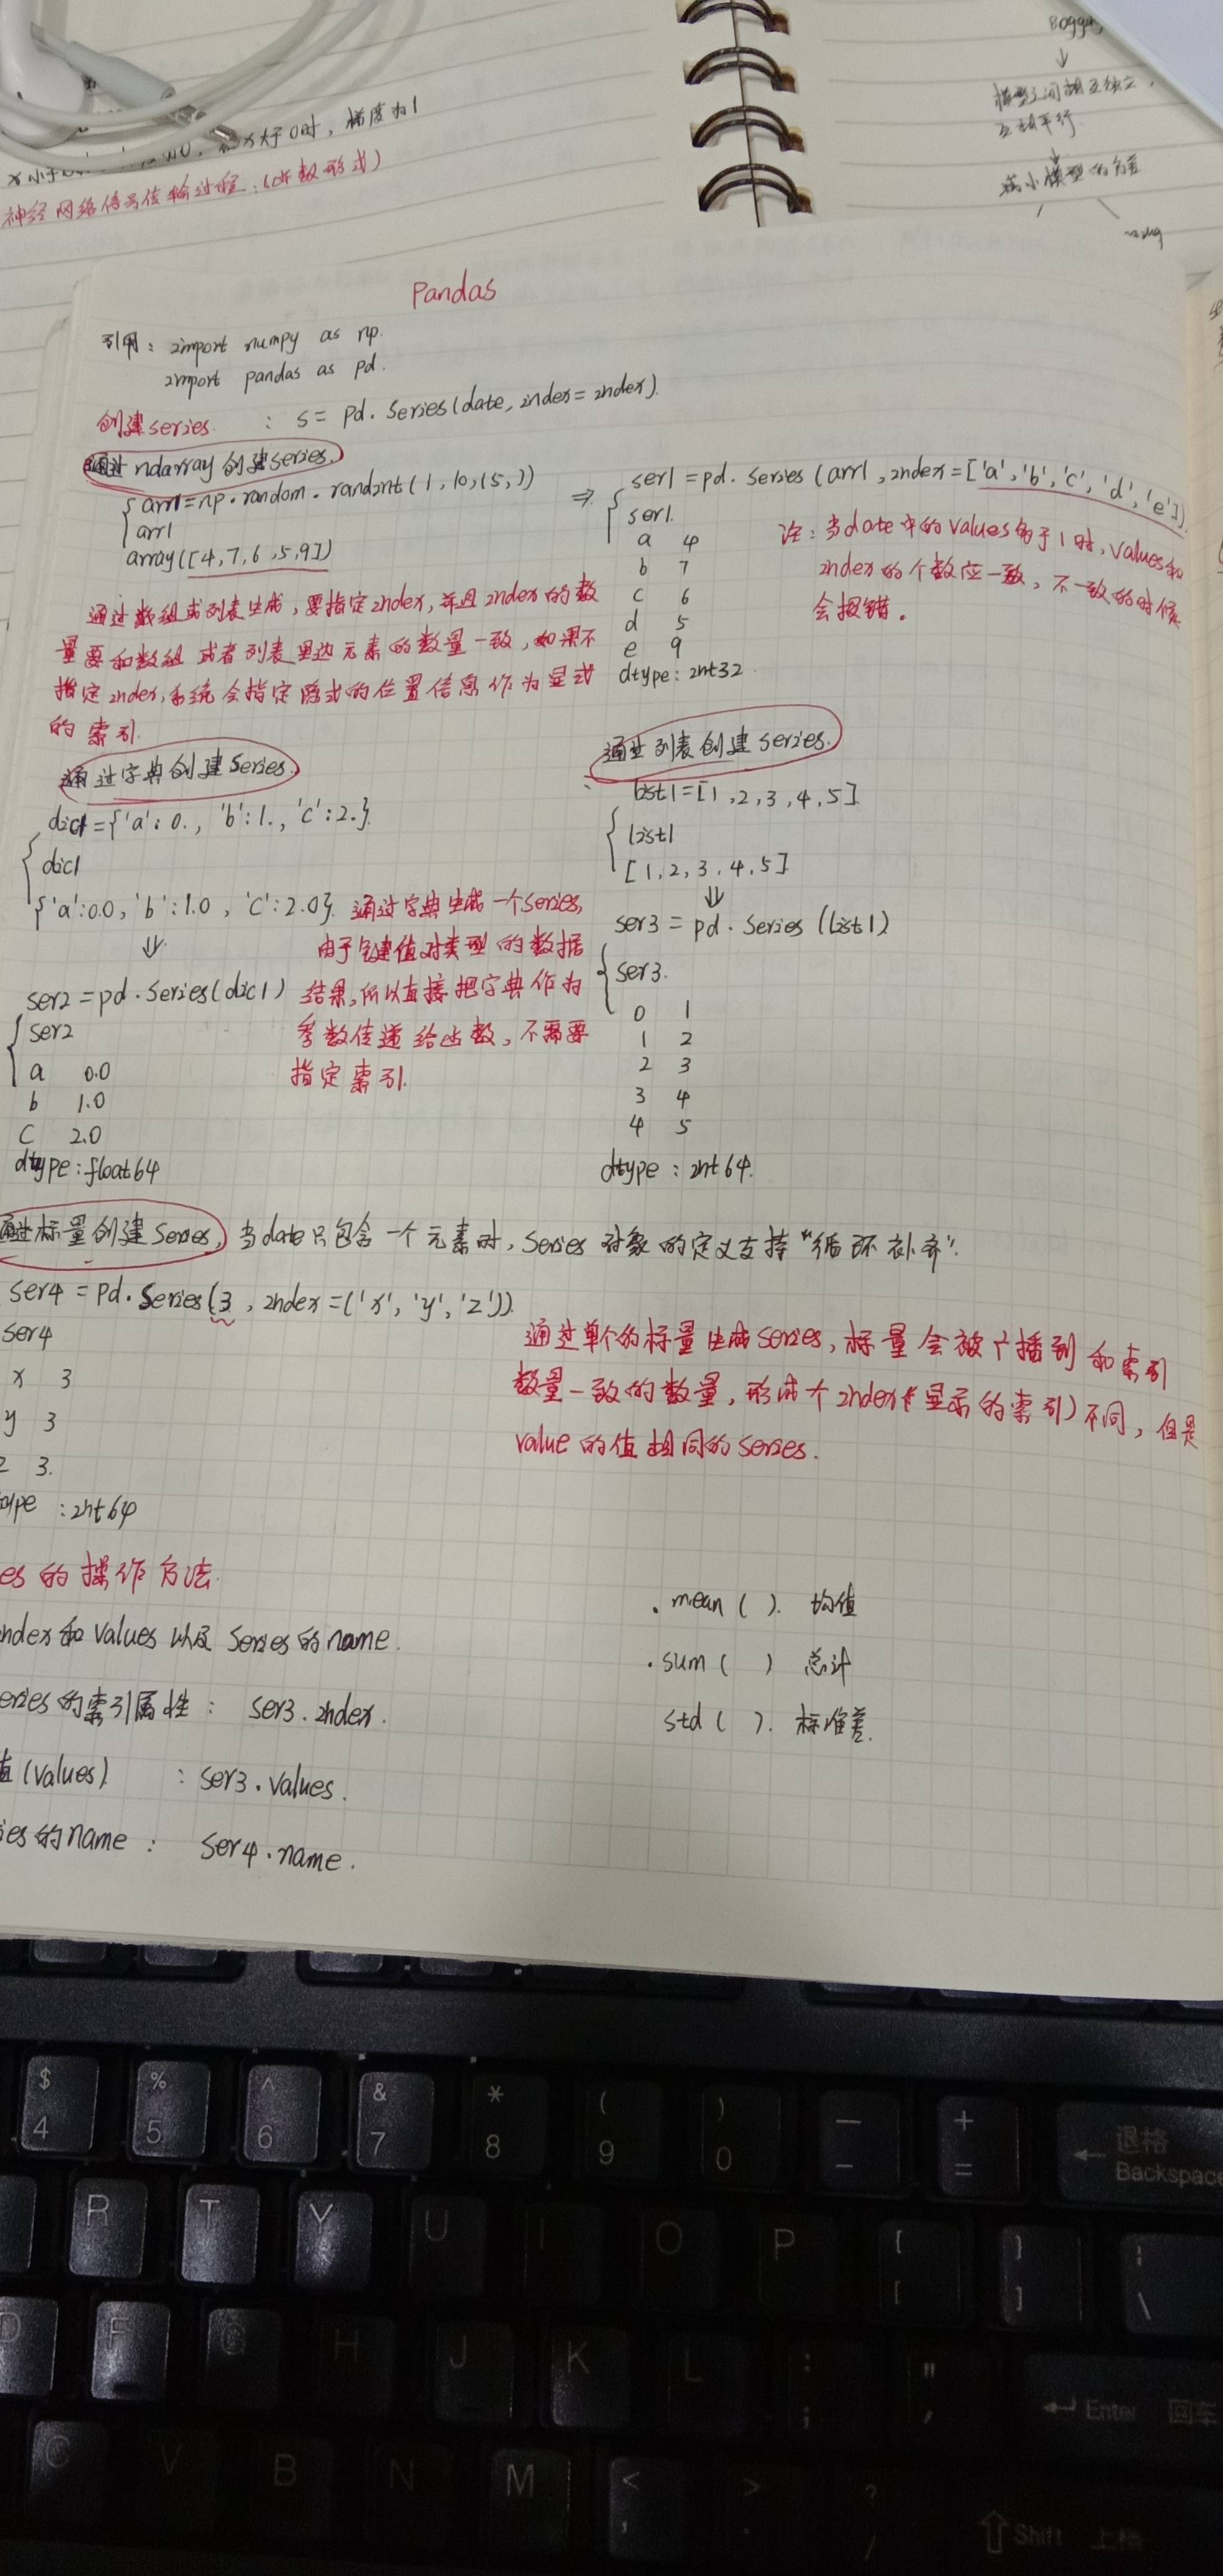 大于0时，梯度为1
神经网络信号传输过程：(函数形式)
模型之间相互独立，
互相平行
减小模型的方差
Pandas
引用：import numpy as np.
import pandas as pd.
创建series. : s = pd. Series(date, index = index).
通过 ndarray 创建series.
arr1 = np. random. randint(1, 10, (5, ))
arr1
array([4, 7, 6, 5, 9])
⇒ ser1 = pd. Series (arr1, index = ['a', 'b', 'c', 'd', 'e']).
ser1.
a 4
b 7
c 6
d 5
e 9
dtype: int32
注：当date中的values多于1时, values和
index的个数应一致，不一致的时候
会报错。
通过数组或列表生成，要指定index, 并且index的数
量要和数组 或者列表里边元素的数量一致, 如果不
指定index, 系统会指定隐式的位置信息作为显式
的索引.
通过字典创建Series.
dic1 = {'a': 0., 'b': 1., 'c': 2.}
dic1
{'a': 0.0, 'b': 1.0, 'c': 2.0}.
⇓
ser2 = pd. Series(dic1)
ser2
a 0.0
b 1.0
C 2.0
dtype: float64
通过字典生成一个series,
由于是键值对类型的数据
结果, 所以直接把字典作为
参数传递给函数，不需要
指定索引.
通过列表创建series.
list1 = [1, 2, 3, 4, 5]
list1
[1, 2, 3, 4, 5]
⇓
ser3 = pd. Series (list1)
ser3.
0 1
1 2
2 3
3 4
4 5
dtype : int 64.
通过标量创建Series, 当date只包含一个元素时, Series 对象的定义支持“循环补齐”.
ser4 = pd. Series(3, index = ('x', 'y', 'z')).
ser4
x 3
y 3
z 3.
type : int64
通过单个的标量生成series, 标量会被广播到和索引
数量一致的数量, 形成个index(显示的索引)不同，但是
value的值相同的series.
es的操作方法.
ndex和values以及Series的name.
eries的索引属性： ser3. index.
值(values) : ser3. values.
ies的name : ser4. name.
. mean ( ). 均值
. sum ( ) 总计
std ( ). 标准差.
$ 4
% 5
^ 6
& 7
* 8
( 9
) 0
— -
+ =
← 退格 Backspace
R T Y U I O P { [ } ] | \
D F G H J K L : ; " ' ↵ Enter 回车
C V B N M < , > . ? / ⇧ Shift 上档